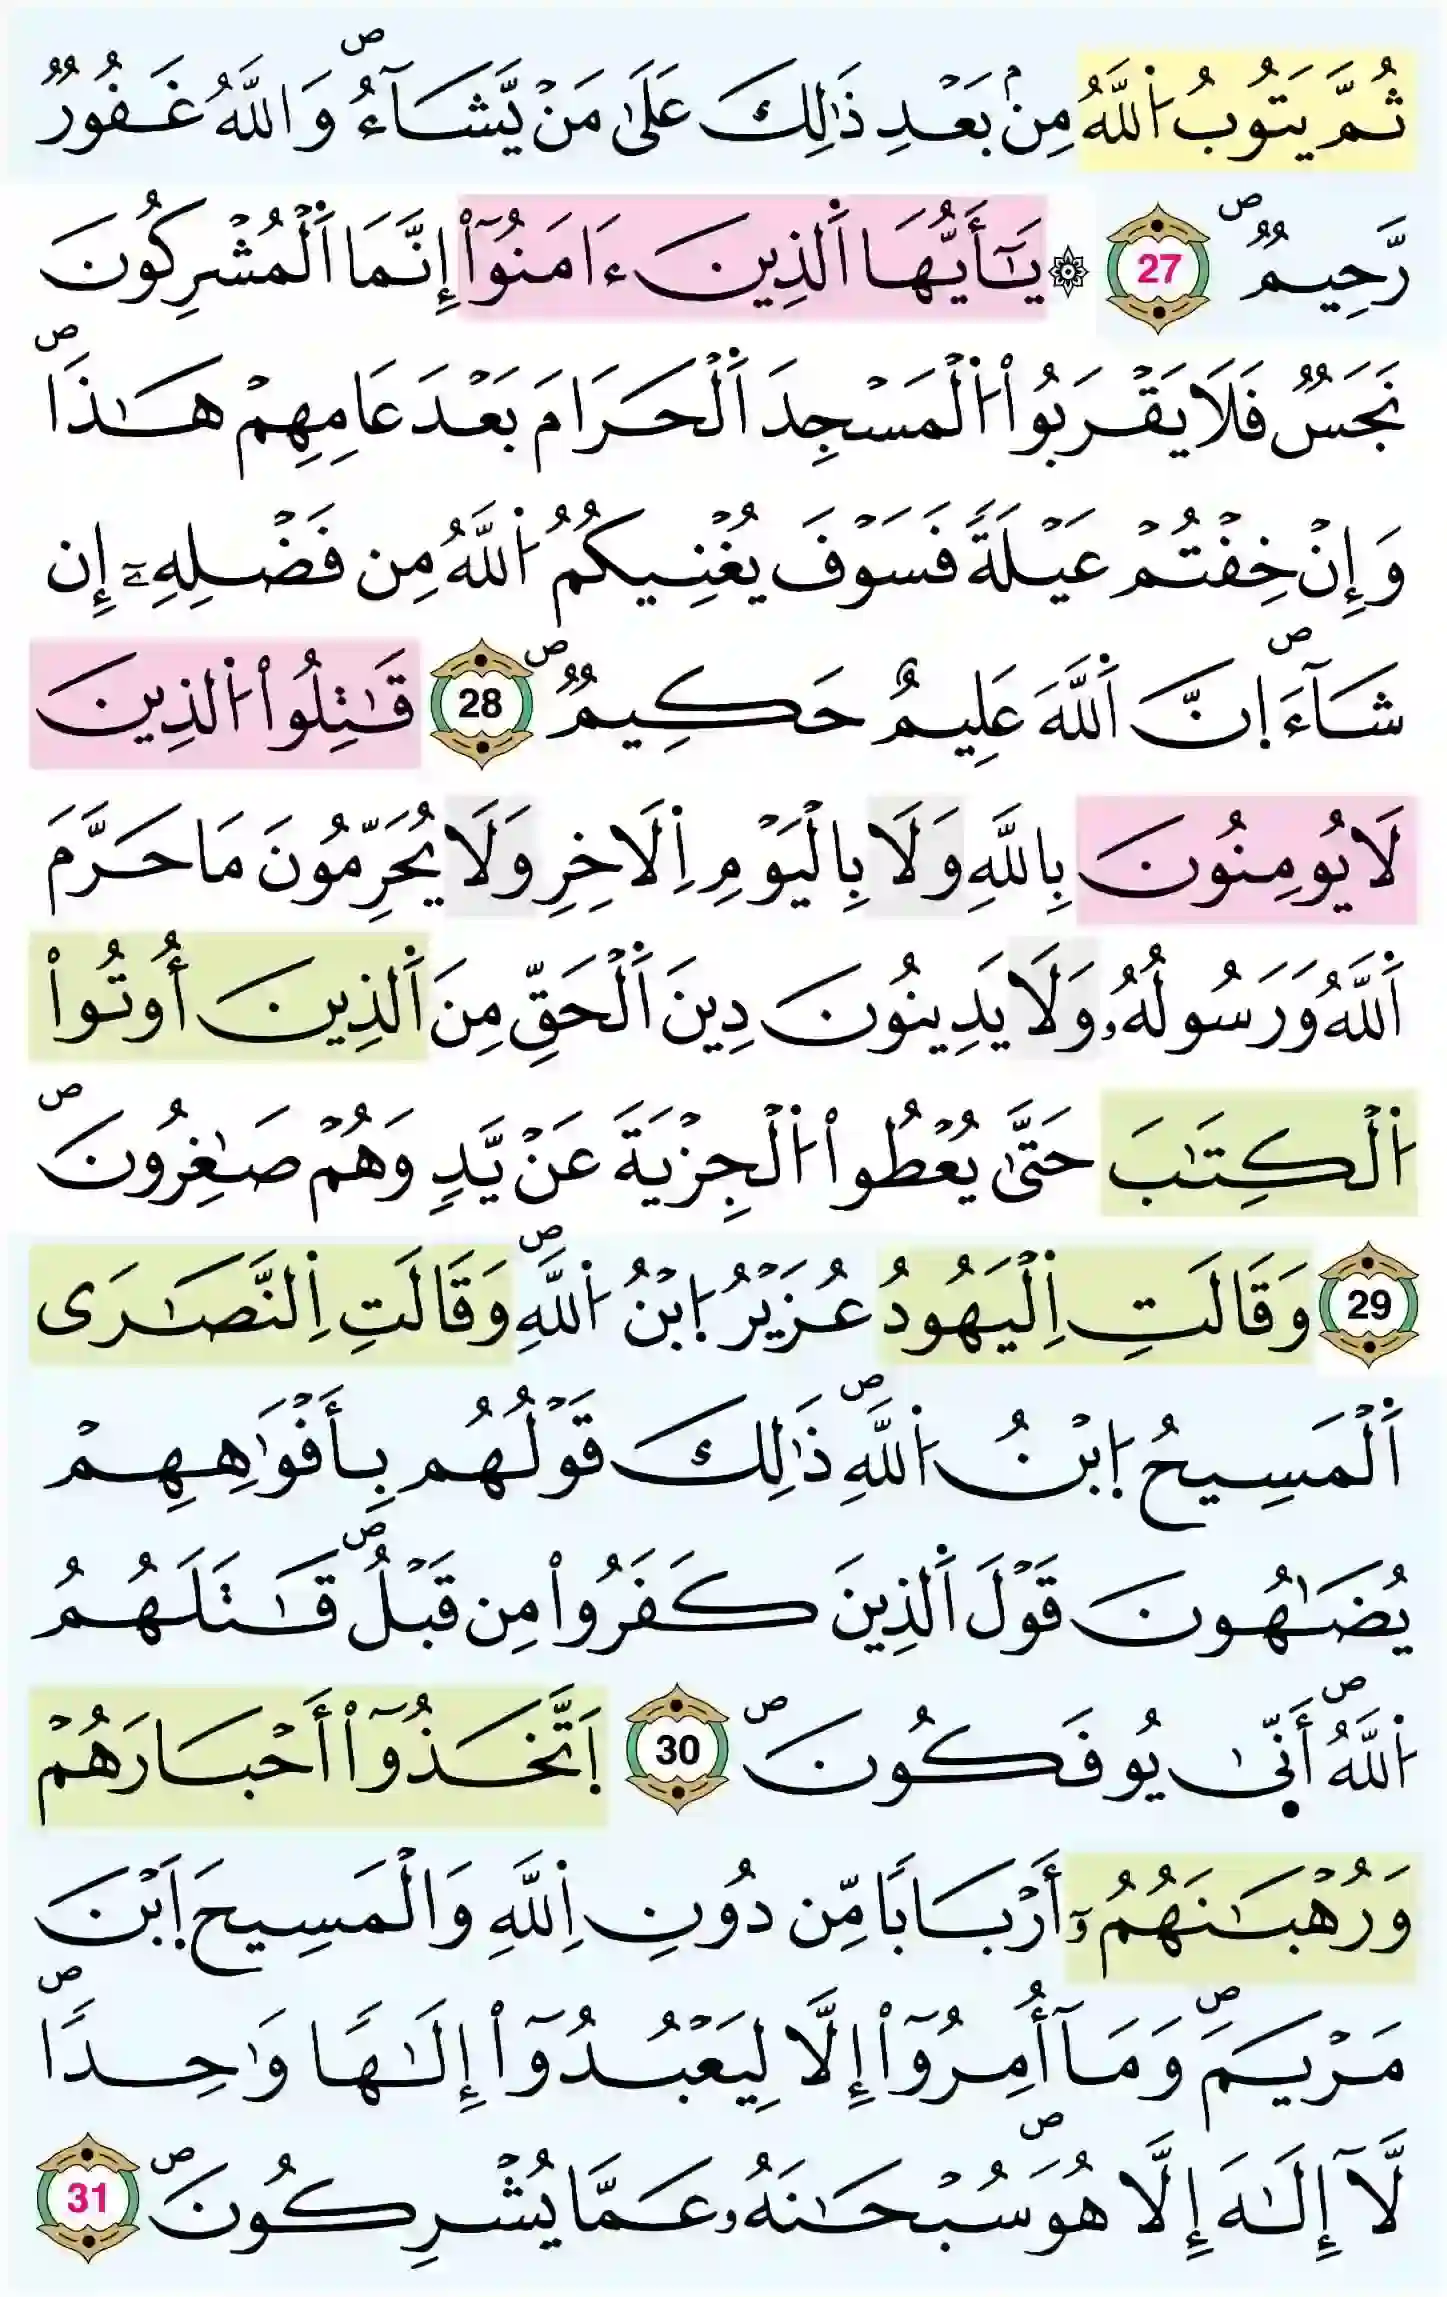 ثُمَّ يَتُوبُ اُ۬للَّهُ مِنۢ بَعْدِ ذَٰلِكَ عَلَىٰ مَنْ يَّشَآءُۖ وَاللَّهُ غَفُورٞ
رَّحِيمٞۖ 27 ۞ يَٰٓأَيُّهَا اَ۬لذِينَ ءَامَنُوٓاْ إِنَّمَا اَ۬لْمُشْرِكُونَ
نَجَسٞ فَلَا يَقْرَبُواْ اُ۬لْمَسْجِدَ اَ۬لْحَرَامَ بَعْدَ عَامِهِمْ هَٰذَاۖ
وَإِنْ خِفْتُمْ عَيْلَةٗ فَسَوْفَ يُغْنِيكُمُ اُ۬للَّهُ مِن فَضْلِهِۦٓ إِن
شَآءَۖ اِنَّ اَ۬للَّهَ عَلِيمٌ حَكِيمٞۖ 28 قَٰتِلُواْ اُ۬لذِينَ
لَا يُومِنُونَ بِاللَّهِ وَلَا بِالْيَوْمِ اِ۬لَاخِرِ وَلَا يُحَرِّمُونَ مَا حَرَّمَ
اَ۬للَّهُ وَرَسُولُهُۥ وَلَا يَدِينُونَ دِينَ اَ۬لْحَقِّ مِنَ اَ۬لذِينَ أُوتُواْ
اُ۬لْكِتَٰبَ حَتَّىٰ يُعْطُواْ اُ۬لْجِزْيَةَ عَنْ يَّدٖ وَهُمْ صَٰغِرُونَۖ
29 وَقَالَتِ اِ۬لْيَهُودُ عُزَيْرُ اُ۪بْنُ اُ۬للَّهِۖ وَقَالَتِ اِ۬لنَّصَٰرَى
اَ۬لْمَسِيحُ اُ۪بْنُ اُ۬للَّهِۖ ذَٰلِكَ قَوْلُهُم بِأَفْوَٰهِهِمْ
يُضَٰهُونَ قَوْلَ اَ۬لذِينَ كَفَرُواْ مِن قَبْلُۖ قَٰتَلَهُمُ
اُ۬للَّهُۖ أَنّ۪ىٰ يُوفَكُونَۖ 30 اَ۪تَّخَذُوٓاْ أَحْبَارَهُمْ
وَرُهْبَٰنَهُمُۥٓ أَرْبَابٗا مِّن دُونِ اِ۬للَّهِ وَالْمَسِيحَ اَ۪بْنَ
مَرْيَمَۖ وَمَآ أُمِرُوٓاْ إِلَّا لِيَعْبُدُوٓاْ إِلَٰهٗا وَٰحِدٗاۖ
لَّآ إِلَٰهَ إِلَّا هُوَۖ سُبْحَٰنَهُۥ عَمَّا يُشْرِكُونَۖ 31